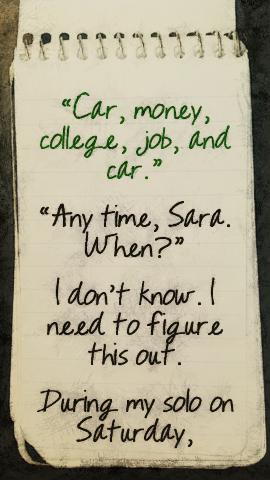 “Car, money,
college, job, and
car.”
“Any time, Sara.
When?”
I don’t know. I
need to figure
this out.
During my solo on
Saturday,